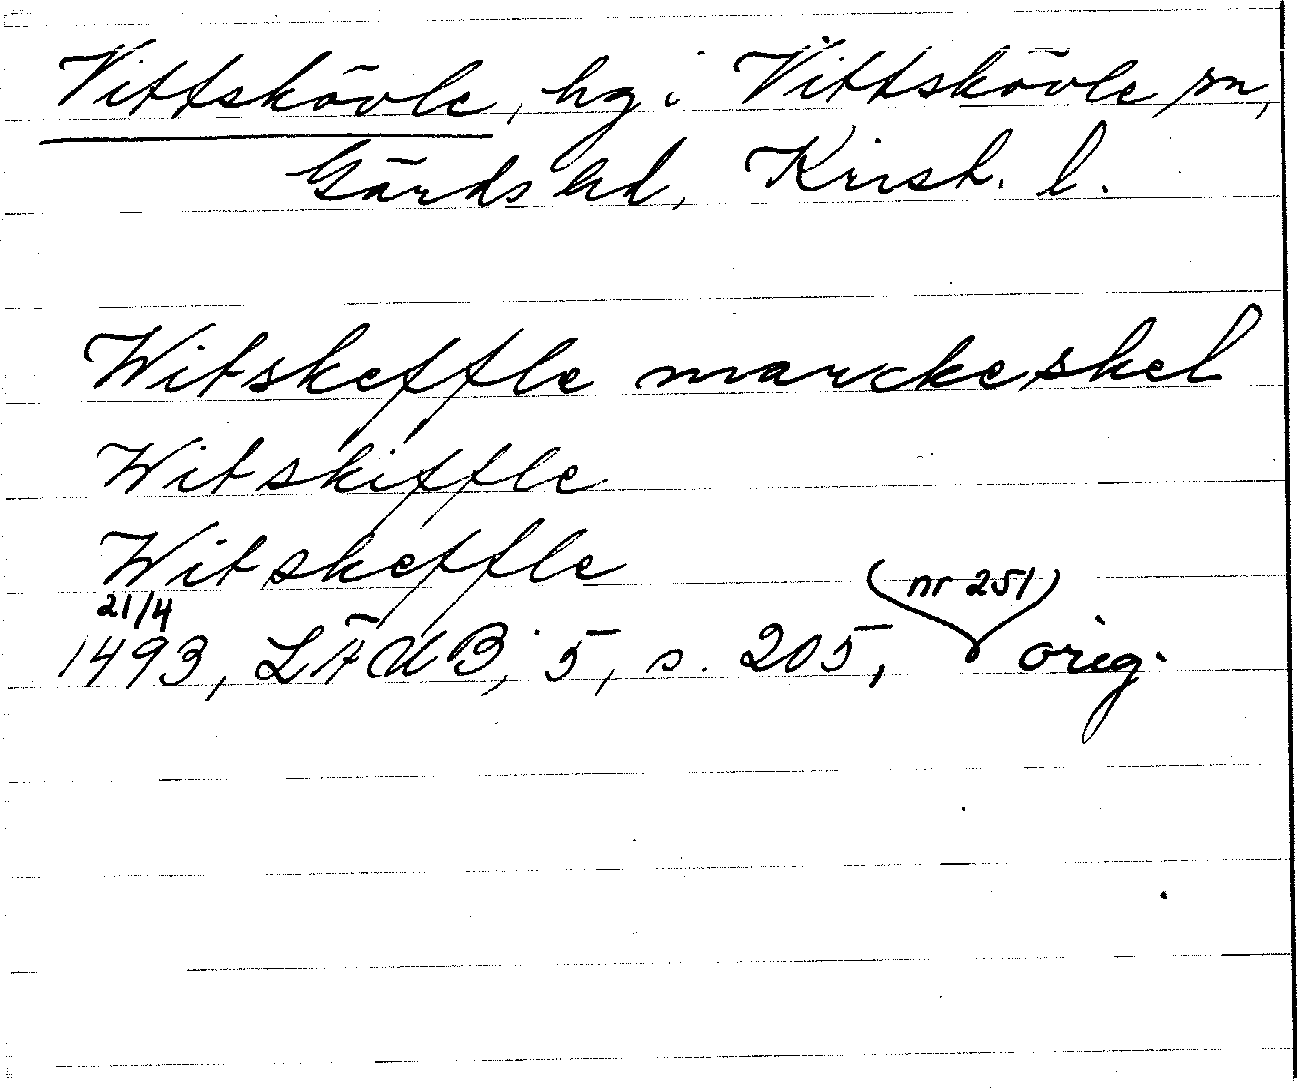 Vittskövle, hg i Vittskövle sn,
Gärds hd, Krist. l.
Witskeffle marckeskel
Witskiffle
Witskeffle
21/4 (nr 251)
1493, LÄUB, 5, s. 205, orig.